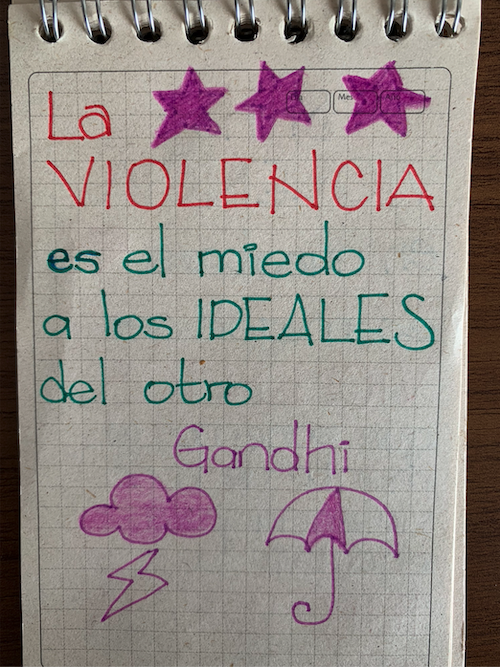 La
VIOLENCIA
es el miedo
a los IDEALES
del otro
Gandhi